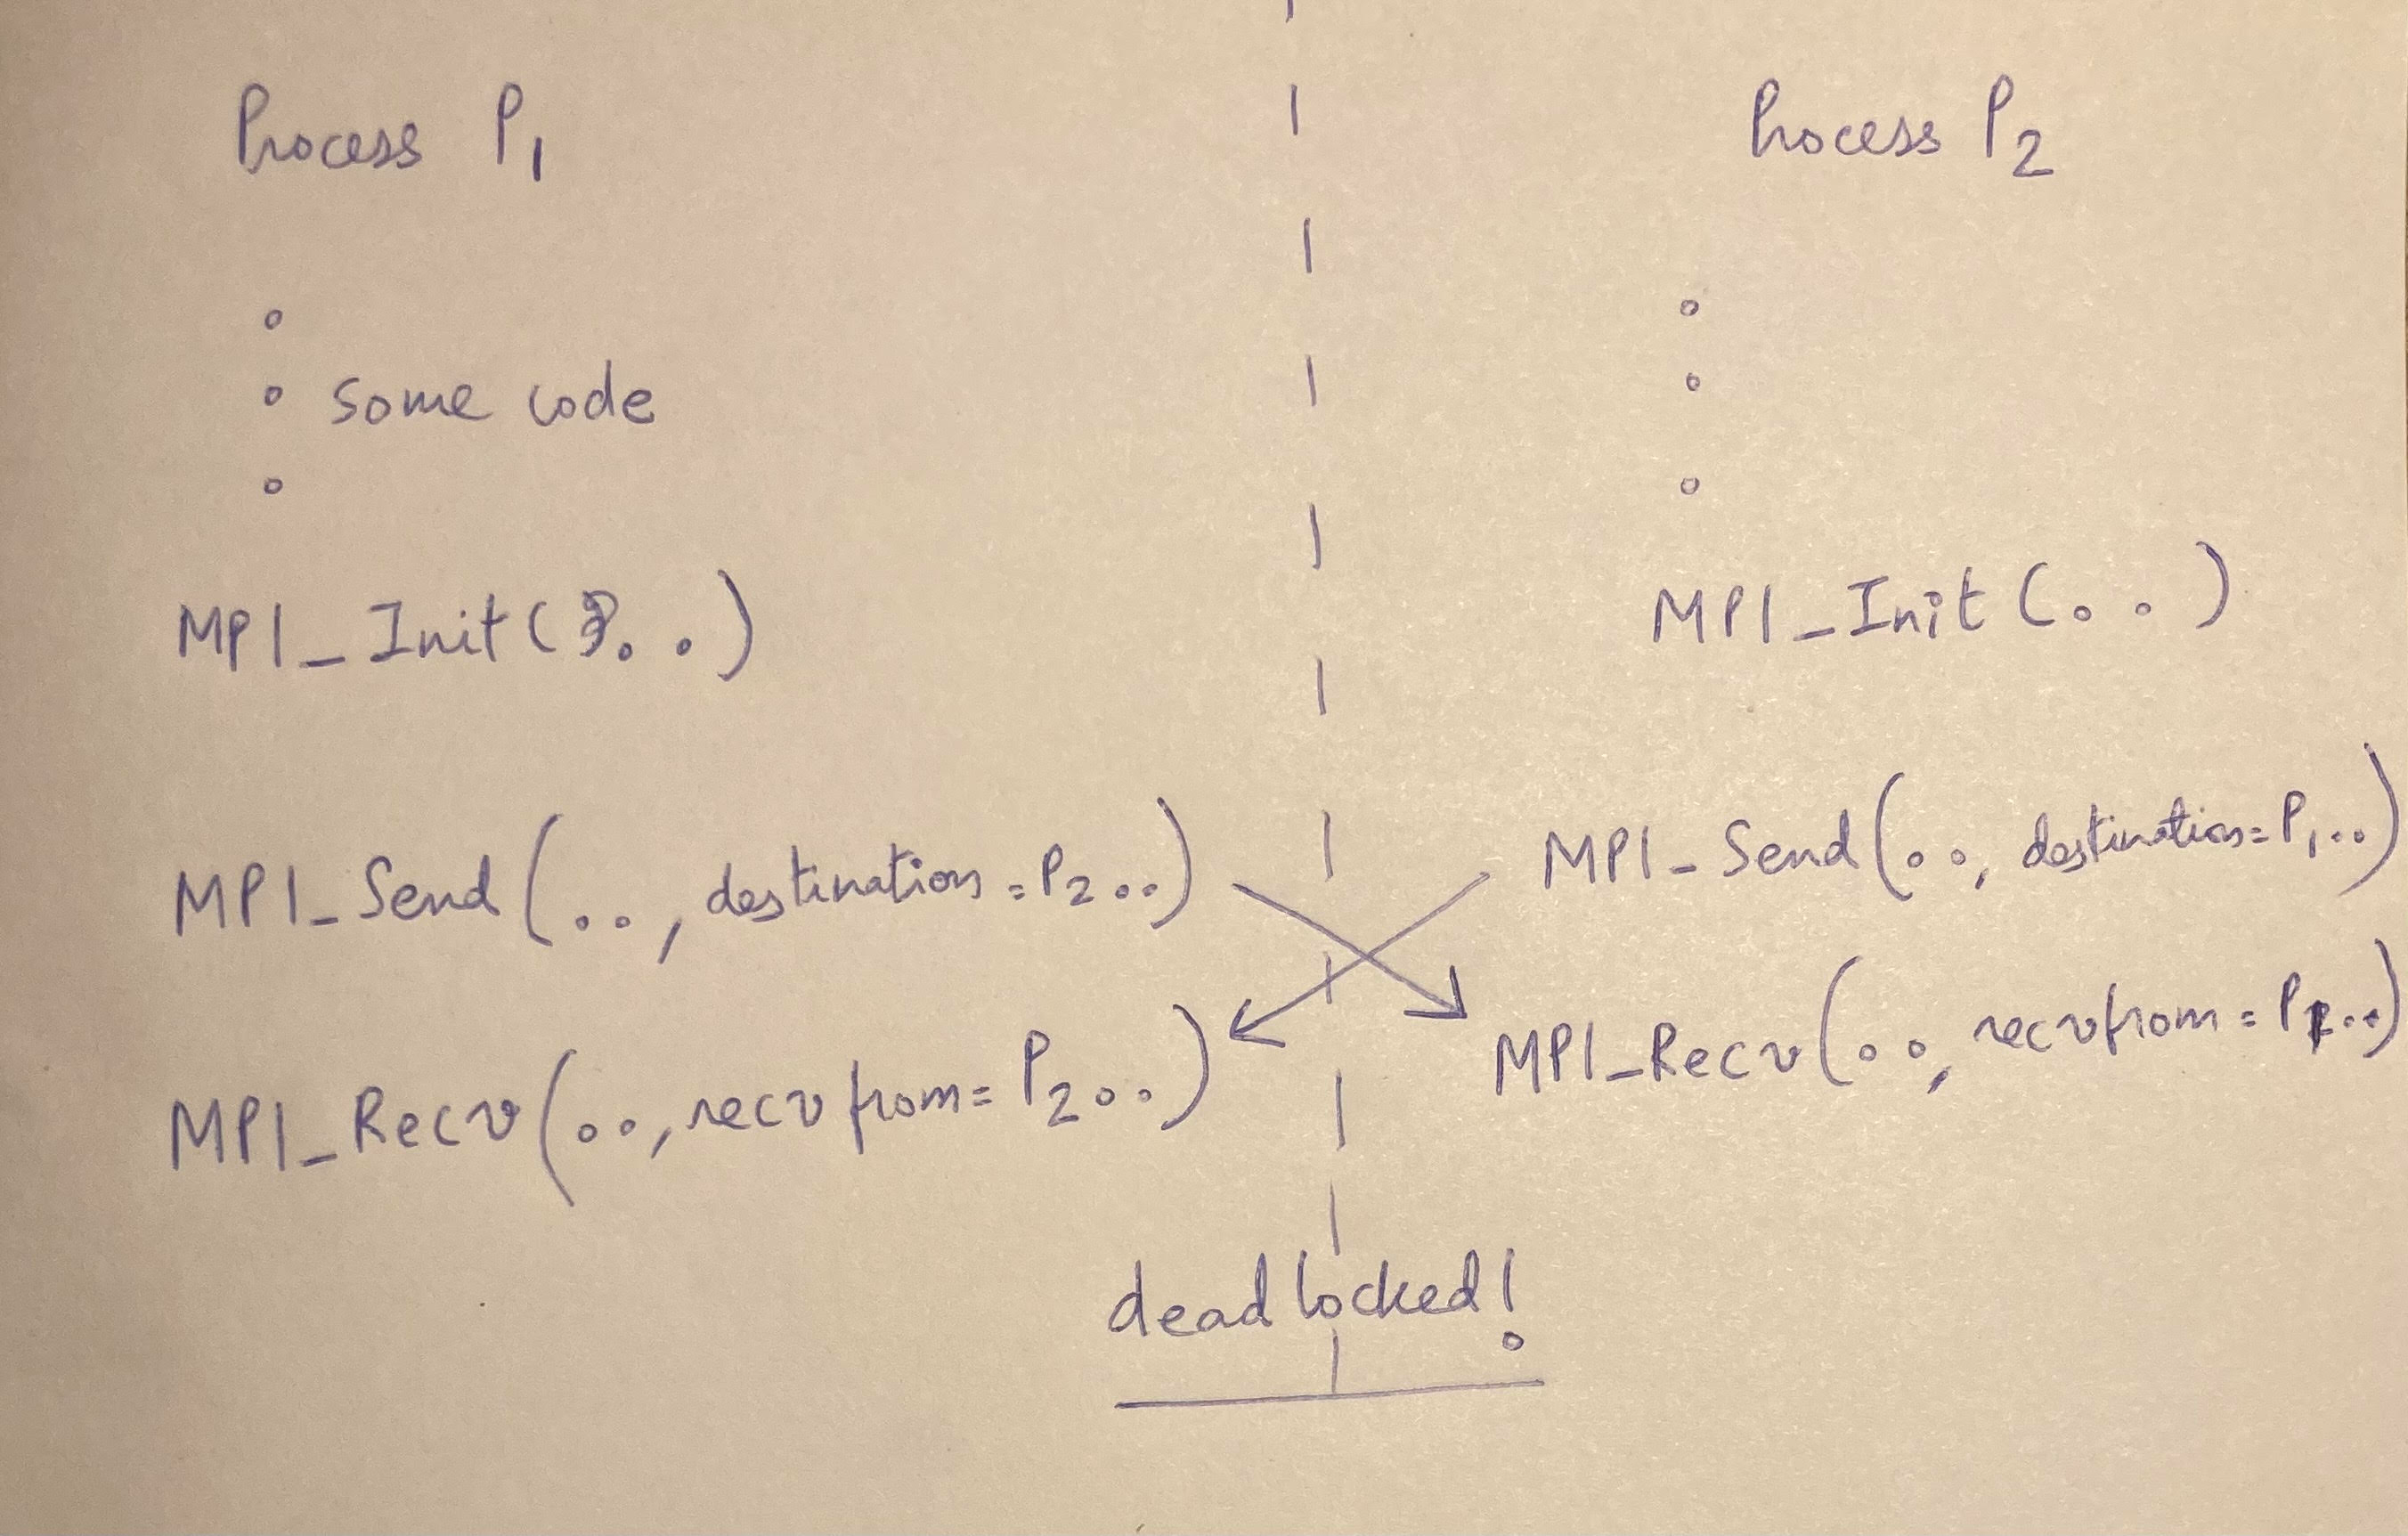 Process P1
Process P2
some code
MPI_Init(..)
MPI_Init(..)
MPI_Send(.., destination=P2..)
MPI_Send(.., destination=P1..)
MPI_Recv(.., recvfrom=P2..)
MPI_Recv(.., recvfrom=P1..)
deadlocked!